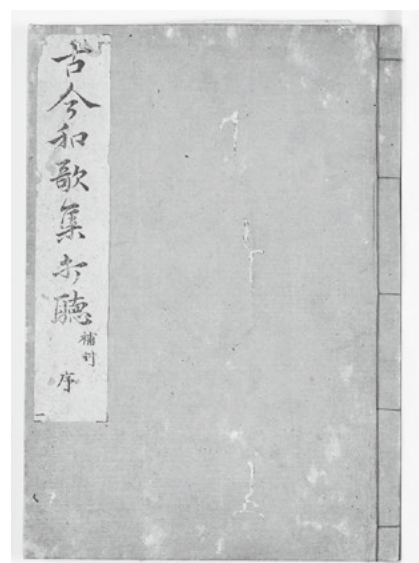 古今和歌集打聴
補刊
序